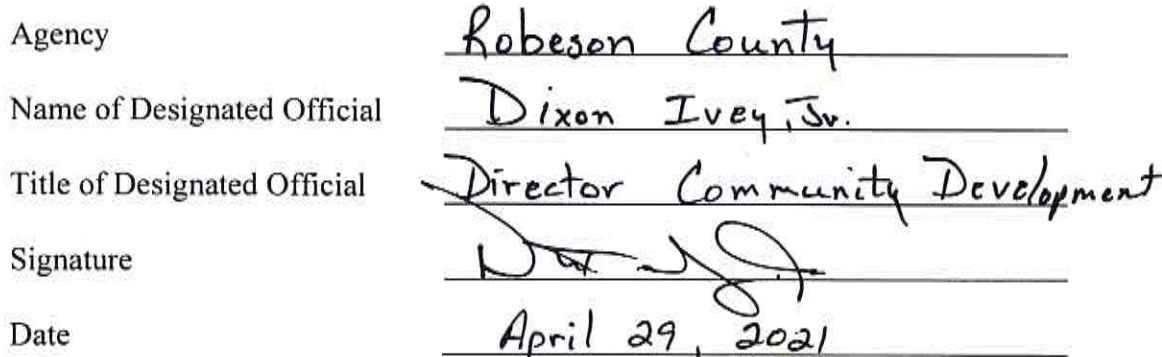 Agency Robeson County
Name of Designated Official Dixon Ivey, Jr.
Title of Designated Official Director Community Development
Signature
Date April 29, 2021